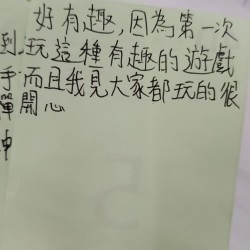 好有趣,因為第一次
玩這種有趣的遊戲
而且我見大家都玩的很
開心
到
手
彈
中